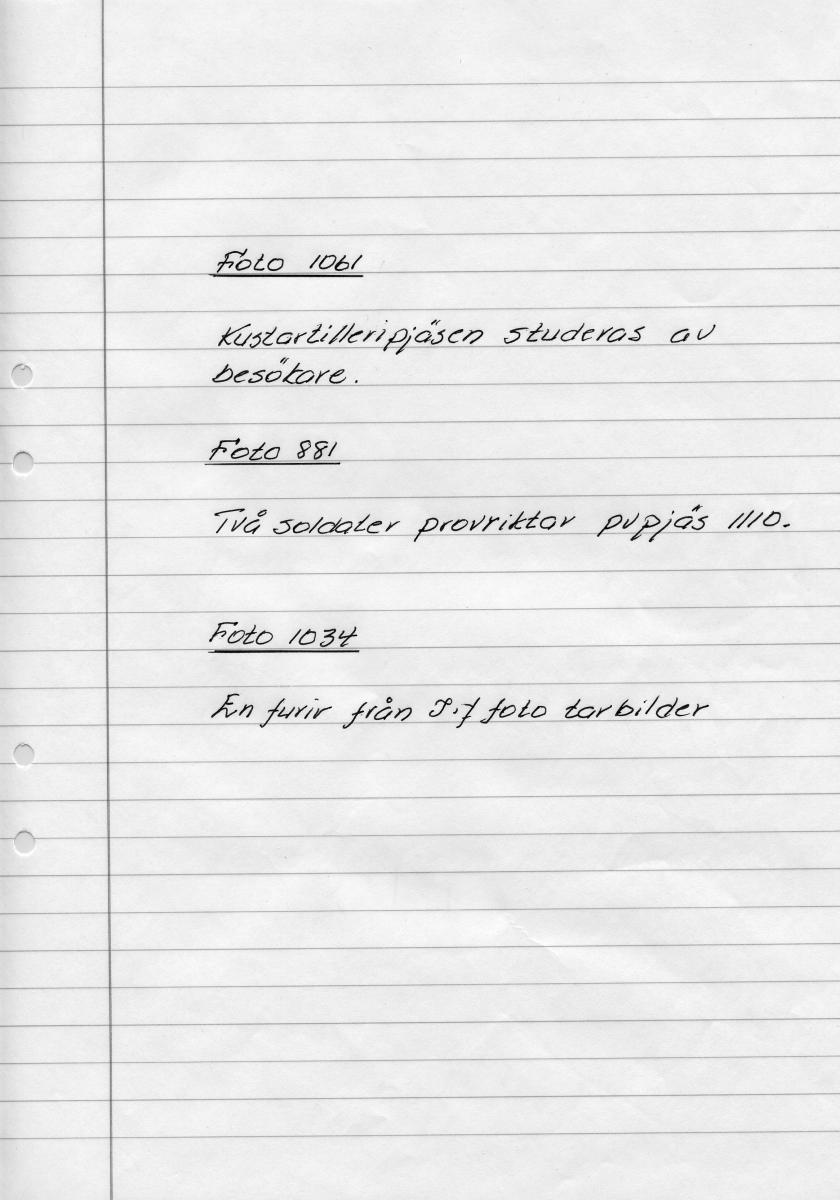 Foto 1061
Kustartilleripjäsen studeras av
besökare.
Foto 881
Två soldater provriktar pvpjäs 1110.
Foto 1034
En furir från I.7 foto tar bilder